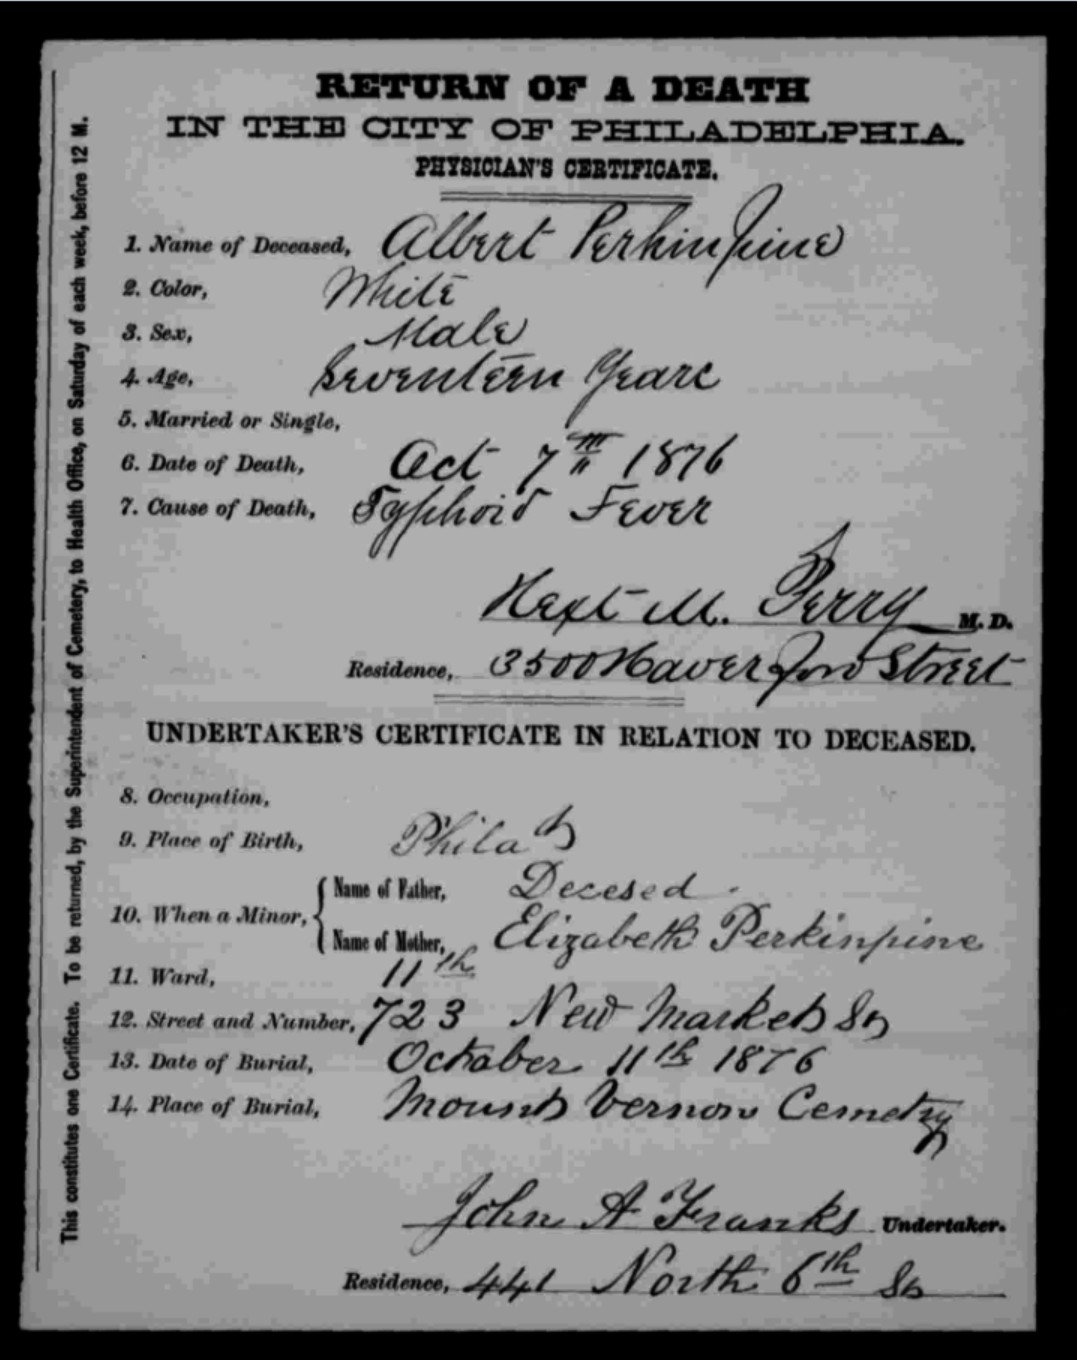 RETURN OF A DEATH
IN THE CITY OF PHILADELPHIA.
PHYSICIAN'S CERTIFICATE.
1. Name of Deceased, Albert Perkinpine
2. Color, White
3. Sex, Male
4. Age, Seventeen Years
5. Married or Single,
6. Date of Death, Oct 7th 1876
7. Cause of Death, Typhoid Fever
Hext M. Perry M. D.
Residence, 3500 Haverford Street
UNDERTAKER'S CERTIFICATE IN RELATION TO DECEASED.
8. Occupation,
9. Place of Birth, Phila
10. When a Minor, Name of Father, Decesed
Name of Mother, Elizabeth Perkinpine
11. Ward, 11th
12. Street and Number, 723 New Market St
13. Date of Burial, October 11th 1876
14. Place of Burial, Mount Vernon Cemetry
John A Franks Undertaker.
Residence, 441 North 6th St
This constitutes one Certificate. To be returned, by the Superintendent of Cemetery, to Health Office, on Saturday of each week, before 12 M.